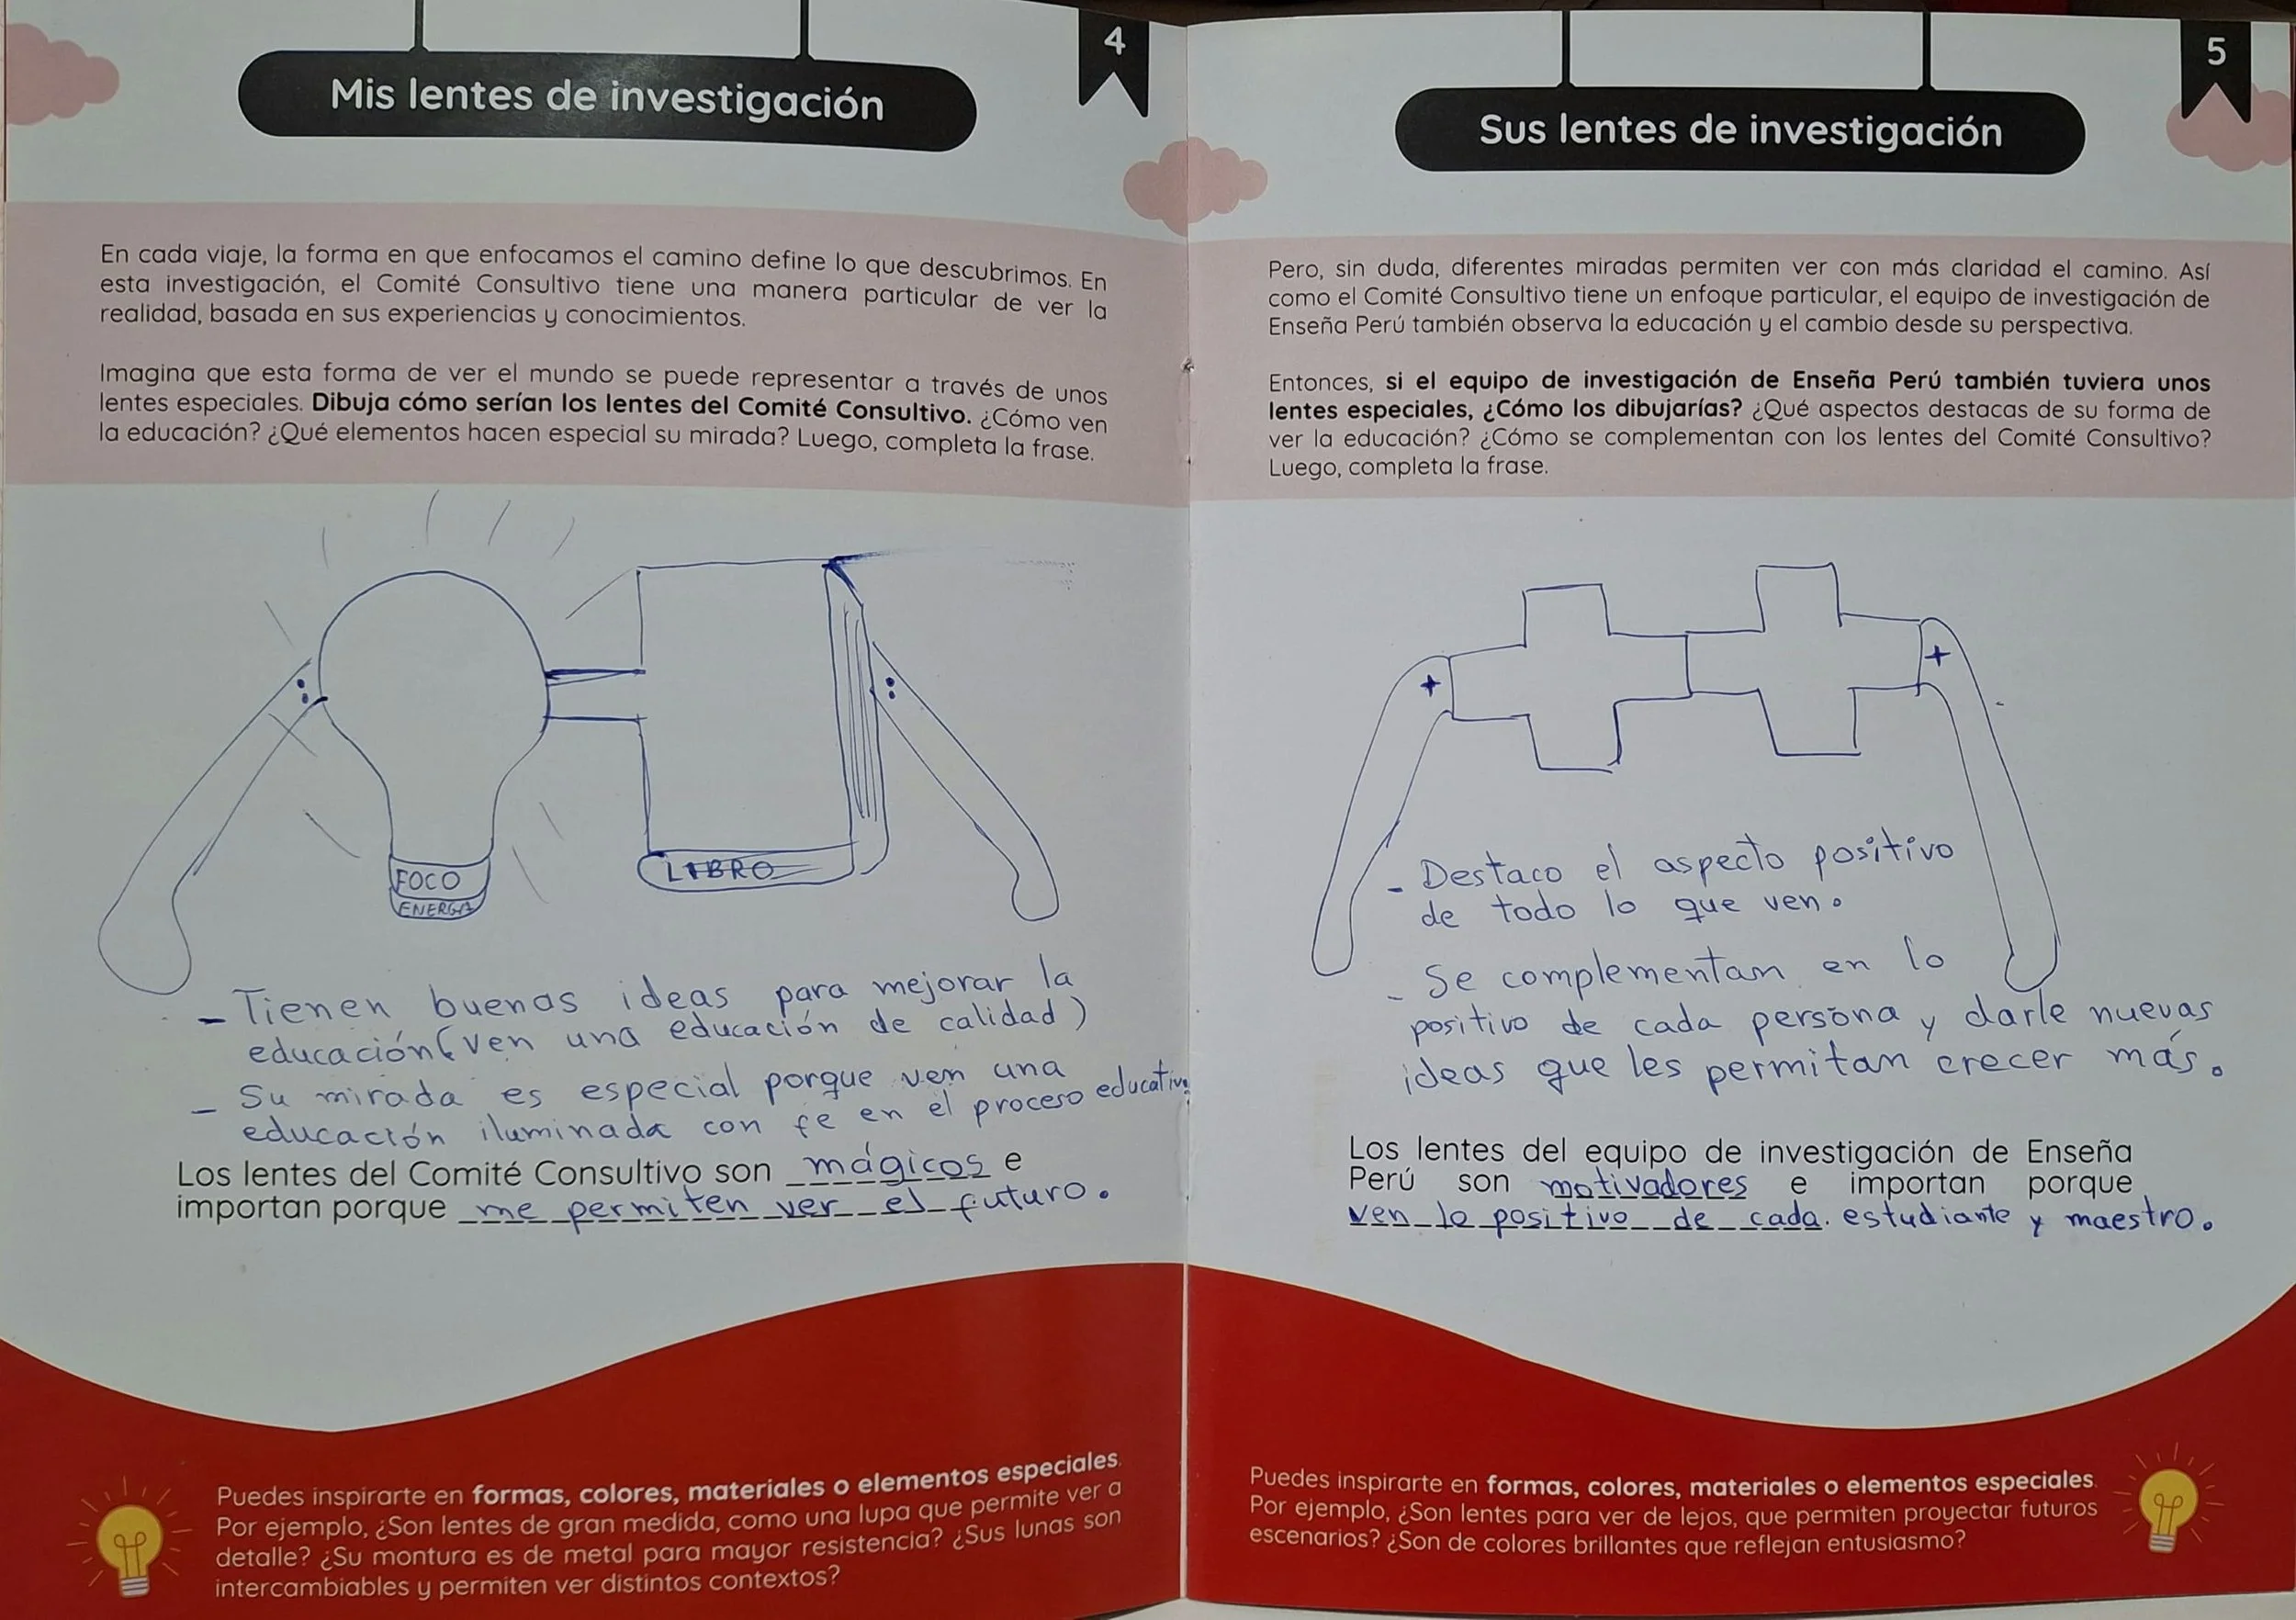 4
Mis lentes de investigación
En cada viaje, la forma en que enfocamos el camino define lo que descubrimos. En
esta investigación, el Comité Consultivo tiene una manera particular de ver la
realidad, basada en sus experiencias y conocimientos.
Imagina que esta forma de ver el mundo se puede representar a través de unos
lentes especiales. Dibuja cómo serían los lentes del Comité Consultivo. ¿Cómo ven
la educación? ¿Qué elementos hacen especial su mirada? Luego, completa la frase.
FOCO
ENERGÍA
LIBRO
- Tienen buenas ideas para mejorar la
educación (ven una educación de calidad)
- Su mirada es especial porque ven una
educación iluminada con fe en el proceso educativo
Los lentes del Comité Consultivo son mágicos e
importan porque me permiten ver el futuro.
Puedes inspirarte en formas, colores, materiales o elementos especiales.
Por ejemplo, ¿Son lentes de gran medida, como una lupa que permite ver a
detalle? ¿Su montura es de metal para mayor resistencia? ¿Sus lunas son
intercambiables y permiten ver distintos contextos?
5
Sus lentes de investigación
Pero, sin duda, diferentes miradas permiten ver con más claridad el camino. Así
como el Comité Consultivo tiene un enfoque particular, el equipo de investigación de
Enseña Perú también observa la educación y el cambio desde su perspectiva.
Entonces, si el equipo de investigación de Enseña Perú también tuviera unos
lentes especiales, ¿Cómo los dibujarías? ¿Qué aspectos destacas de su forma de
ver la educación? ¿Cómo se complementan con los lentes del Comité Consultivo?
Luego, completa la frase.
+ +
- Destaco el aspecto positivo
de todo lo que ven.
- Se complementan en lo
positivo de cada persona y darle nuevas
ideas que les permitan crecer más.
Los lentes del equipo de investigación de Enseña
Perú son motivadores e importan porque
ven lo positivo de cada estudiante y maestro.
Puedes inspirarte en formas, colores, materiales o elementos especiales.
Por ejemplo, ¿Son lentes para ver de lejos, que permiten proyectar futuros
escenarios? ¿Son de colores brillantes que reflejan entusiasmo?